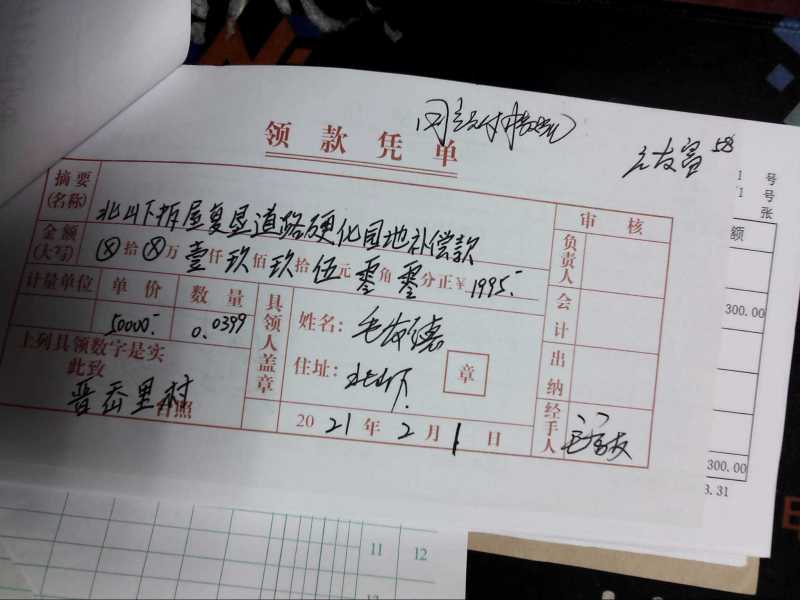 领款凭单
58
1 号
1 号
张
摘要(名称) 北山下拆屋复垦道路硬化园地补偿款
审核
额
金额(大写) ⊗拾⊗万壹仟玖佰玖拾伍元零角零分正¥1995.-
负责人
计量单位 单价 数量
具领人盖章
姓名:毛发德
会计
300.00
50000.- 0.0399
上列具领数字是实
住址:北山下
章
出纳
此致
晋岙里村
台照
2021年2月1日
经手人
300.00
3.31
11 12